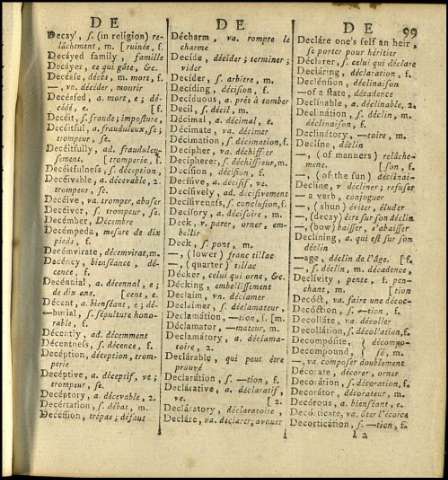 D E
D E
D E
99
Decay', s. (in religion) re-
lâchement, m. [ruinée, f.
Decáyed family, famille
Decáyer, ce qui gâte, &c.
Decéase, décès, m. mort, f.
—, vn. décéder, mourir
Decéased, a. mort, e; dé-
cédé, e [f.
Decéit, s. fraude; imposture,
Decéitful, a. frauduleux, se;
trompeur, se
Decéitfully, ad. frauduleu-
sement, [tromperie, f.
Decéitfulness, s. déception,
Decéivable, a. décevable, 2.
trompeur, se
Decéive, va. tromper, abuser
Decéiver, s. trompeur, se
Decémber, Décembre
Decémpeda, mesure de dix
pieds, f.
Decémvirate, décemvirat, m.
Décency, bienséance, dé-
cence, f.
Decénnial, a. décennal, e;
de dix ans. [cent, e.
Décent, a. bienséant, e; dé-
—burial, s. sépulture hono-
rable, f.
Décently, ad. décemment
Décentness, s. décence, f.
Decéption, déception, trom-
perie
Decéptive, a. déceptif, ve;
trompeur, se
Decéptory, a. décevable, 2.
Decertátion, s. débat, m.
Decéssion, trépas; défaut
Décharm, va. rompre le
charme
Decide, décider; terminer;
vider
Decíder, s. arbitre, m.
Decíding, décision, f.
Decíduous, a. prêt à tomber
Decil, s. décil, m.
Décimal, a. décimal, e.
Décimate, va. décimer
Decimátion, s. décimation, f.
Decípher, va. déchiffrer
Decípherer, s. déchiffreur, m.
Decísion, décision, f.
Decísive, a. décisif, ve.
Decísively, ad. décisivement
Decísiveness, s. conclusion, f.
Decísory, a. décisoire, m.
Deck, v. parer, orner, em-
bellir
Deck, s. pont, m.
—, (lower) franc tillac
—, (quarter) tillac
Décker, celui qui orne, &c.
Décking, embellissement
Decláim, vn. déclamer
Decláimer, s. déclamateur,
Declamátion, —tion, f. [m.
Declamátor, —mateur, m.
Declámatory, a. déclama-
toire, 2.
Declárable, qui peut être
prouvé
Declarátion, s. —tion, f.
Declárative, a. déclaratif,
ve. [2.
Decláratory, déclaratoire,
Decláre, va. déclarer, avouer
Decláre one's self an heir,
se porter pour héritier
Declárer, s. celui qui déclare
Decláring, déclaration, f.
Declénsion, déclinaison
—of a state, décadence
Declínable, a. déclinable, 2.
Declinátion, s. déclin, m.
déclinaison, f.
Declínatory, —toire, m.
Declíne, déclin
—, (of manners) relâche-
ment. [son, f.
—, (of the sun) déclinai-
Declíne, v. décliner; refuser
—a verb, conjuguer
—, (shun) éviter, éluder
—, (decay) être sur son déclin
—, (bow) baisser, s'abaisser
Declíning, a. qui est sur son
déclin
—age, déclin de l'âge. [f.
—, s. déclin, m. décadence,
Declívity, pente, f. pen-
chant, m. [tion
Decóct, va. faire une décoc-
Decóction, s. —tion, f.
Decolláte, va. décoller
Decollátion, s. décollation, f.
Decompósite, } décompo-
Decompóund, } sé, m.
—, va. composer doublement
Décorate, décorer, orner
Decorátion, s. décoration, f.
Décorátor, décorateur, m.
Decórous, a. bienséant, e.
Decórticate, va. ôter l'écorce
Decorticátion, s. —tion, f.